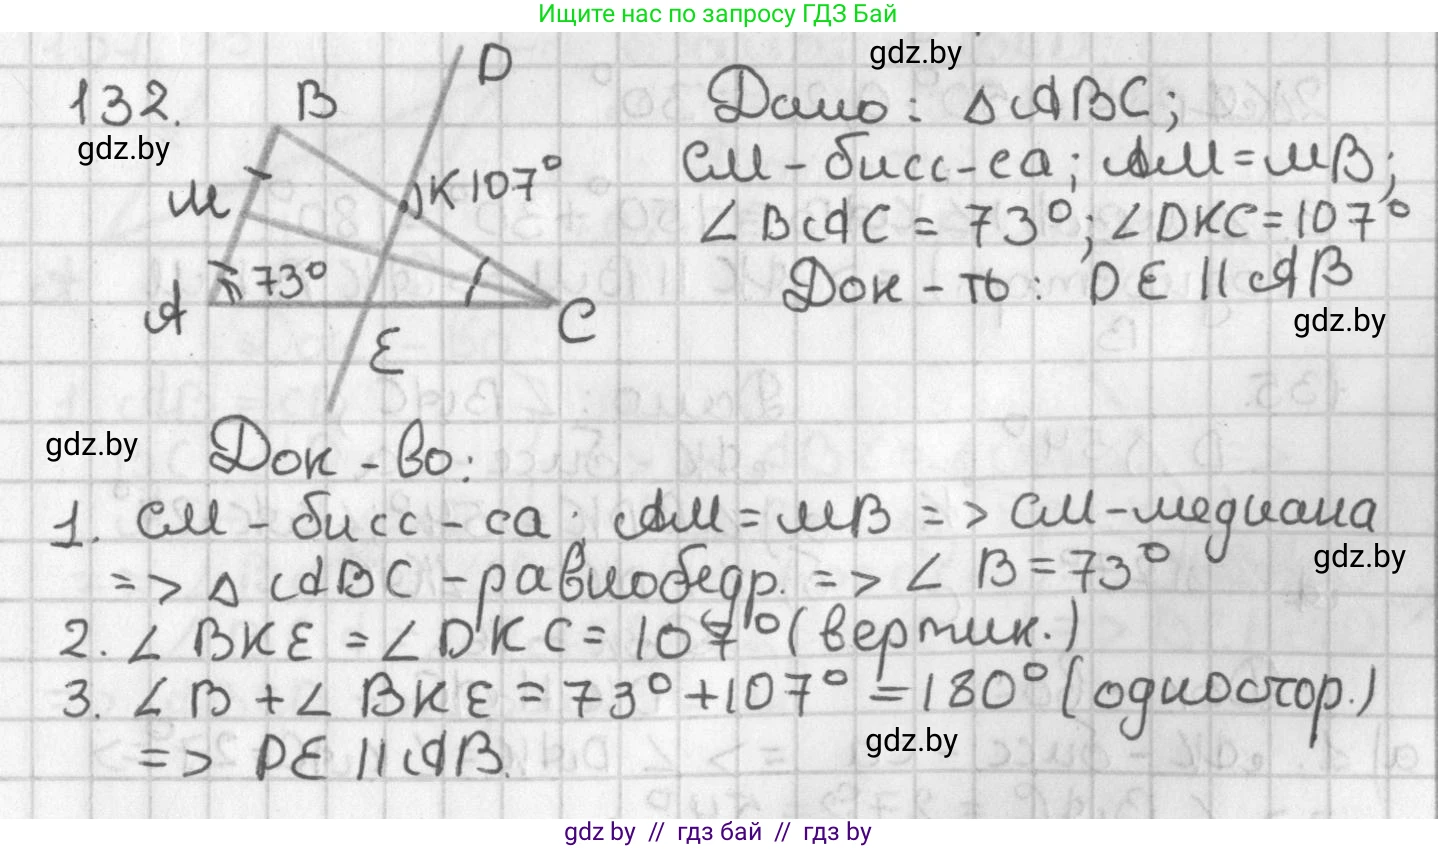 Ищите нас по запросу ГДЗ Бай
gdz.by
132.
gdz.by
B
D
M
K 107°
A
73°
E
C
Дано: △ABC;
CM - бисс-са; AM = MB;
∠BAC = 73°; ∠DKC = 107°
Док-ть: DE || AB
gdz.by
gdz.by
Док-во:
1. CM - бисс-са; AM = MB => CM - медиана
gdz.by
=> △ABC - равнобедр. => ∠B = 73°
2. ∠BKE = ∠DKC = 107° (вертик.)
3. ∠B + ∠BKE = 73° + 107° = 180° (одностор.)
gdz.by
=> DE || AB.
gdz by // гдз бай // гдз by